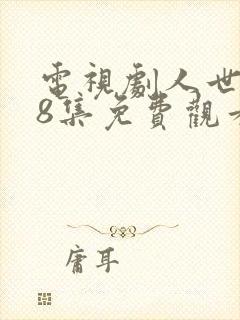 電視劇人世
8集免費觀
庸耳